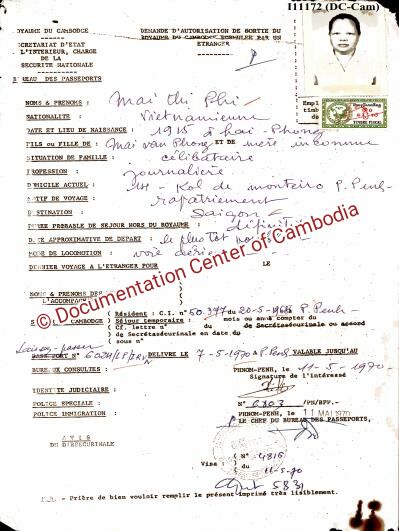 I11172 (DC-Cam)
ROYAUME DU CAMBODGE
DEMANDE D'AUTORISATION DE SORTIE DU
ROYAUME DU CAMBODGE FORMULEE PAR UN
ETRANGER
SECRETARIAT D'ETAT
A L'INTERIEUR, CHARGE
DE LA
SECURITE NATIONALE
BUREAU DES PASSEPORTS
NOMS & PRENOMS : Mai thi Phi
NATIONALITE : Vietnamienne
DATE ET LIEU DE NAISSANCE : 1915 à hai-Phong
FILS ou FILLE DE : Mai van Phong ET DE mère inconnue
SITUATION DE FAMILLE : célibataire
PROFESSION : journalière
DOMICILE ACTUEL : Kol de monteiro P. Penh
MOTIF DE VOYAGE : rapatriement
DESTINATION : Saigon
DUREE PROBABLE DE SEJOUR HORS DU ROYAUME : définitif
DATE APPROXIMATIVE DE DEPART : le plus tôt
MODE DE LOCOMOTION : voie
DERNIER VOYAGE A L'ETRANGER POUR LE
NOMS & PRENOMS DES
L'ACCOMPAGN
© Documentation Center of Cambodia
( Résident : C.I. n° 50.377 du 20-5-1968 à P. Penh
CAMBODGE ( Séjour temporaire : mois ou an à compter du
( Cf. lettre n° du de Secrétasdeurinale ou accord
( de Secrétasdeurinale en date du
( sous n°
Laissez-passer
PASSEPORT N° DELIVRE LE 7-5-1970 à P. Penh VALABLE JUSQU'AU
BUREAUX CONSULTES : PHNOM-PENH, le 11-5-1970
Signature de l'intéressé
IDENTITE JUDICIAIRE :
POLICE SPECIALE : N° 6803 /PN/BPP.-
POLICE IMMIGRATION : PHNOM-PENH, le 11 MAI 1970
LE CHEF DU BUREAU DES PASSEPORTS,
AVIS
DU DIRSECURINALE
Visa : ( N° 4816
( du 11-5-70
5831
N.B. - Prière de bien vouloir remplir le présent imprimé très lisiblement.